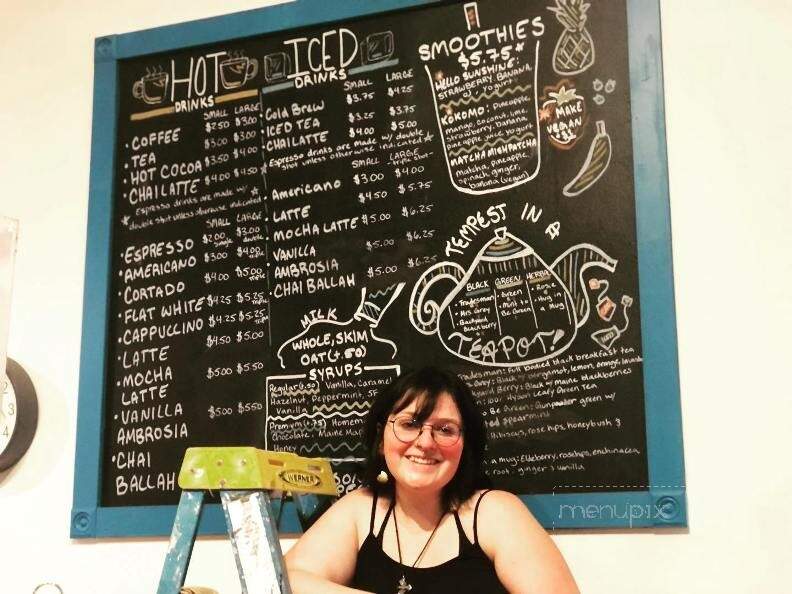 HOT
DRINKS
SMALL LARGE
• COFFEE $2.50 $3.00
• TEA $3.00 $3.00
• HOT COCOA $3.50 $4.00
• CHAI LATTE $4.00 $4.50
Espresso drinks are made w/
double shot unless otherwise indicated
SMALL LARGE
• ESPRESSO $2.00 single $3.00 double
• AMERICANO $3.00 $4.00
• CORTADO $4.00 $5.00
• FLAT WHITE $4.25 $5.25
• CAPPUCCINO $4.25 $5.25
• LATTE $4.50 $5.00
• MOCHA
LATTE $5.00 $5.50
• VANILLA
AMBROSIA $5.00 $5.50
• CHAI
BALLAH
ICED
DRINKS
SMALL LARGE
• Cold Brew $3.75 $4.25
• ICED TEA $3.25 $3.75
• CHAI LATTE $4.00 $5.00
Espresso drinks are made w/ double
shot unless otherwise indicated
SMALL LARGE
• Americano $3.00 $4.00
• LATTE $4.50 $5.75
• MOCHA LATTE $5.00 $6.25
• VANILLA
AMBROSIA $5.00 $6.25
• CHAI BALLAH $5.00 $6.25
MILK
WHOLE, SKIM
OAT (+.50)
SYRUPS
Regular (.50) Vanilla, Caramel
Hazelnut, Peppermint, SF
Vanilla
Premium (.75) Homem
Chocolate, Maine Map
Honey
SMOOTHIES
$5.75*
HELLO SUNSHINE:
STRAWBERRY, BANANA,
YOGURT
KOKOMO: pineapple,
mango, coconut, lime,
strawberry, banana
pineapple juice yogurt
MATCHA MIGHPATCHA
matcha, pineapple,
spinach, ginger,
banana (vegan)
MAKE
VEGAN
+$1
TEMPEST IN A
BLACK GREEN HERBAL
• Tradesman
• Mrs Grey
• Backyard
Blackberry
• Green
• Mint to
Be Green
• Rosie
• Hug in
a Mug
TEAPOT!
Tradesman: Full bodied black breakfast tea
Grey: Black w/ bergamot, lemon, orange, lavender
yard Berry: Black w/ maine blackberries
Green Tea
To Be Green: Gunpowder green w/
spearmint
Hibiscus, rose hips, honeybush &
in a mug: Elderberry, rosehips, echinacea,
root, ginger & vanilla
WERNER
menupix